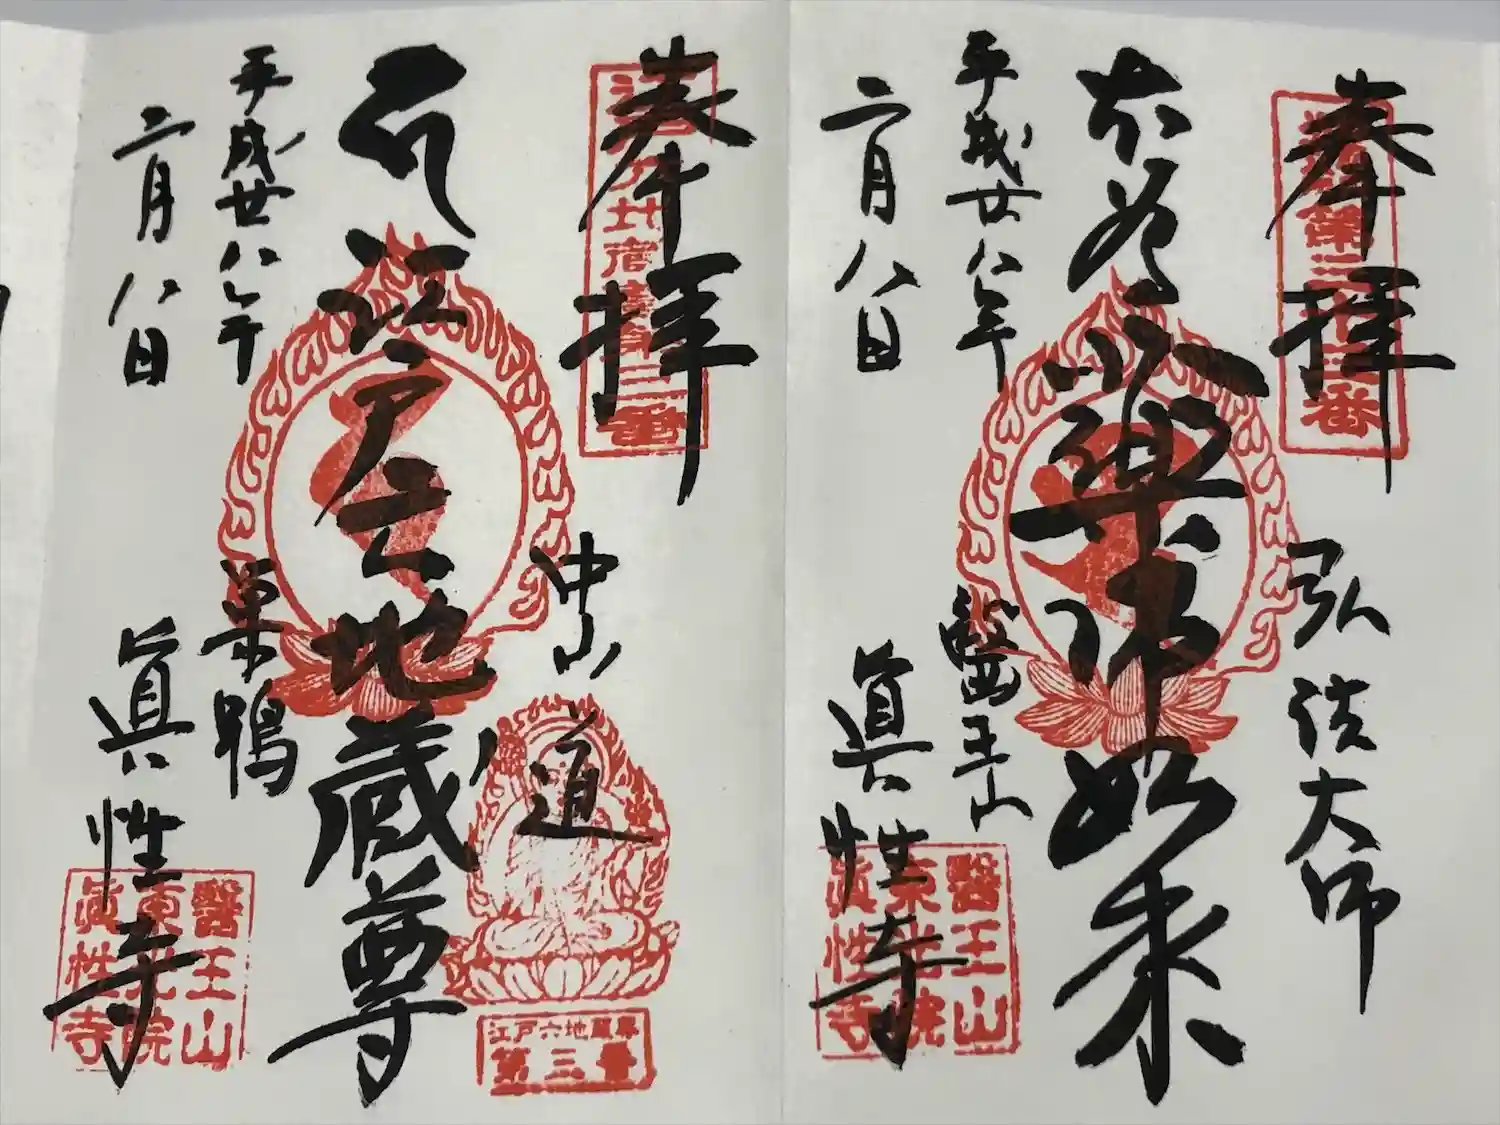 奉拝
弘法大師
本尊
薬師如来
平成廿八年
二月八日
醫王山
眞性寺
第三十三番
醫王山
東光院
眞性寺
奉拝
中山道
江戸六地蔵尊
平成廿八年
二月八日
巣鴨
眞性寺
江戸六地蔵尊
第三番
醫王山
東光院
眞性寺